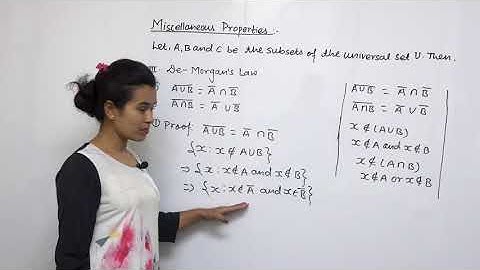 Miscellaneous Properties :-
Let, A, B and C be the subsets of the universal set U. Then.
III. De-Morgan's Law
A̅∪̅B̅ = A̅ ∩ B̅
A̅∩̅B̅ = A̅ ∪ B̅
① Proof: A̅∪̅B̅ = A̅ ∩ B̅
{x : x ∉ A∪B}
⇒ {x : x ∉ A and x ∉ B}
⇒ {x : x ∉ A̅ and x ∈ B̅}
A̅∪̅B̅ = A̅ ∩ B̅
A̅∩̅B̅ = A̅ ∪ B̅
x ∉ (A∪B)
x ∉ A and x ∉ B
x ∉ (A∩B)
x ∉ A or x ∉ B